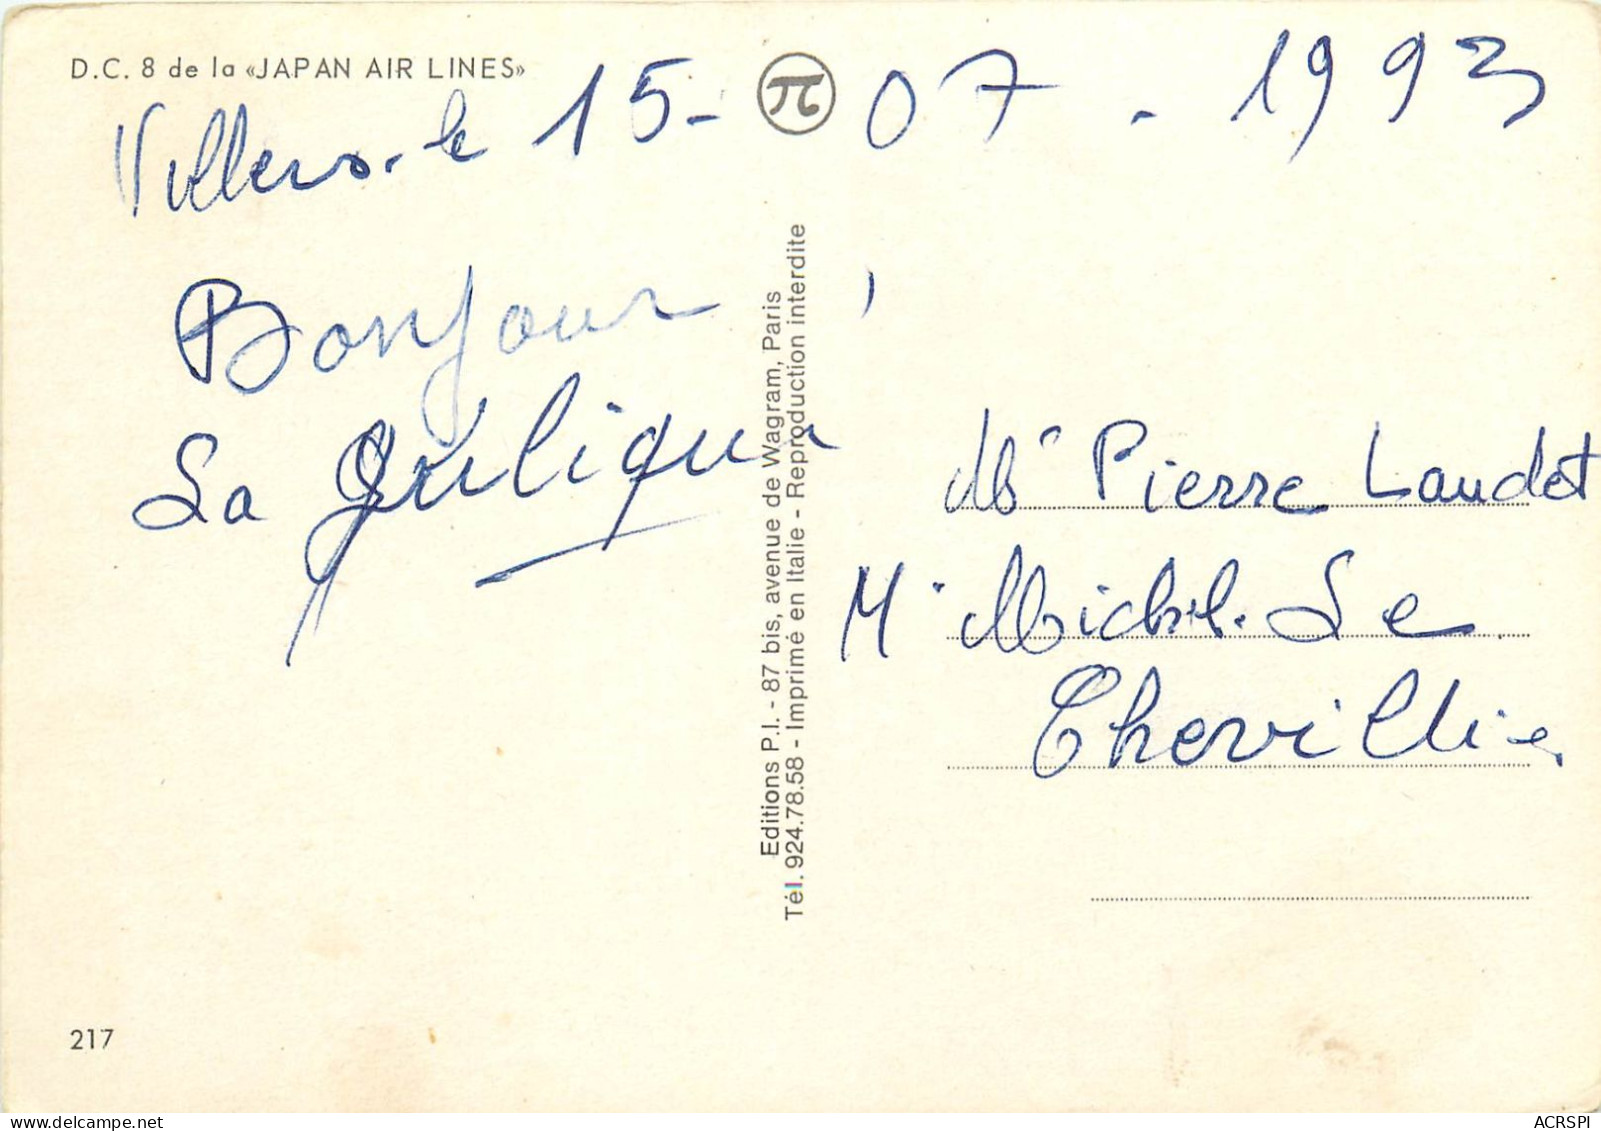 D.C. 8 de la «JAPAN AIR LINES»
Villers. le 15 - 07 . 1993
π
Bonjour
La
Editions P.I. - 87 bis, avenue de Wagram, Paris
Tél. 924.78.58 - Imprimé en Italie - Reproduction interdite
Mr Pierre Laudet
Mr Michel. Le
Chevillier
217
ACRSPI